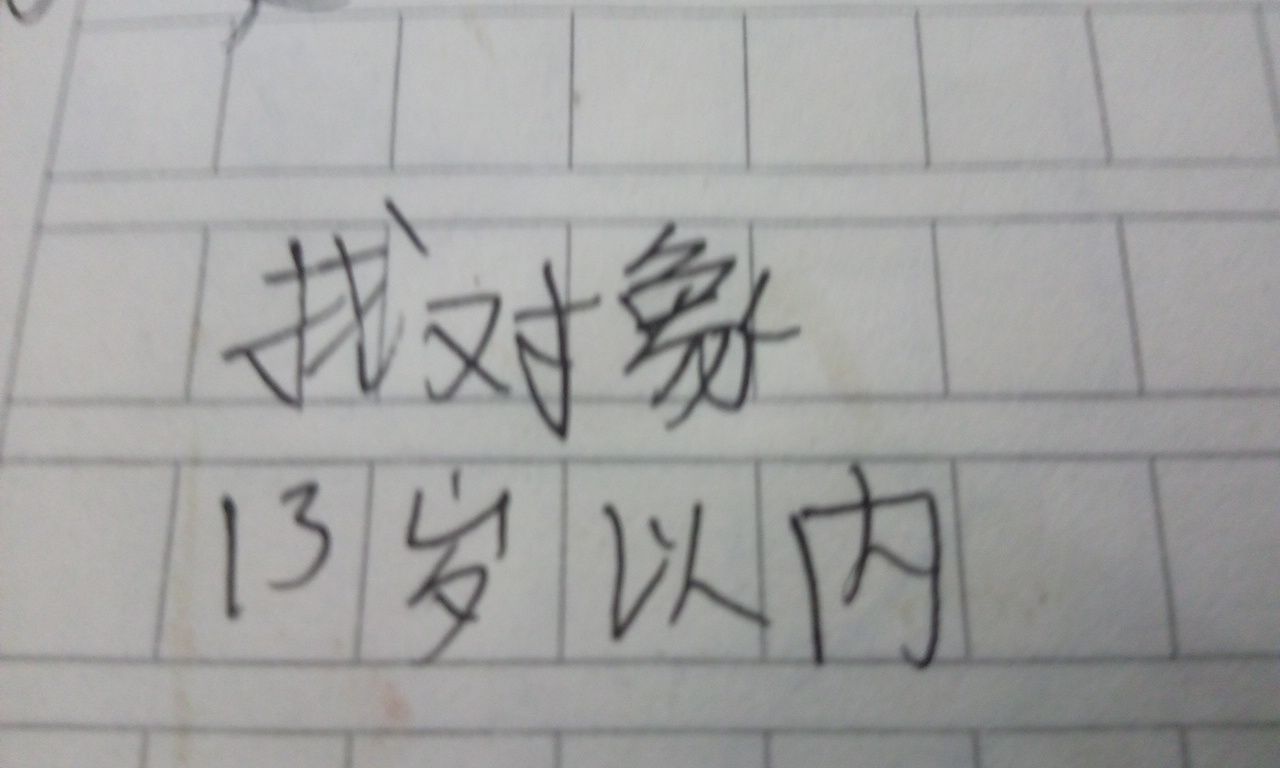 找对象
13岁以内